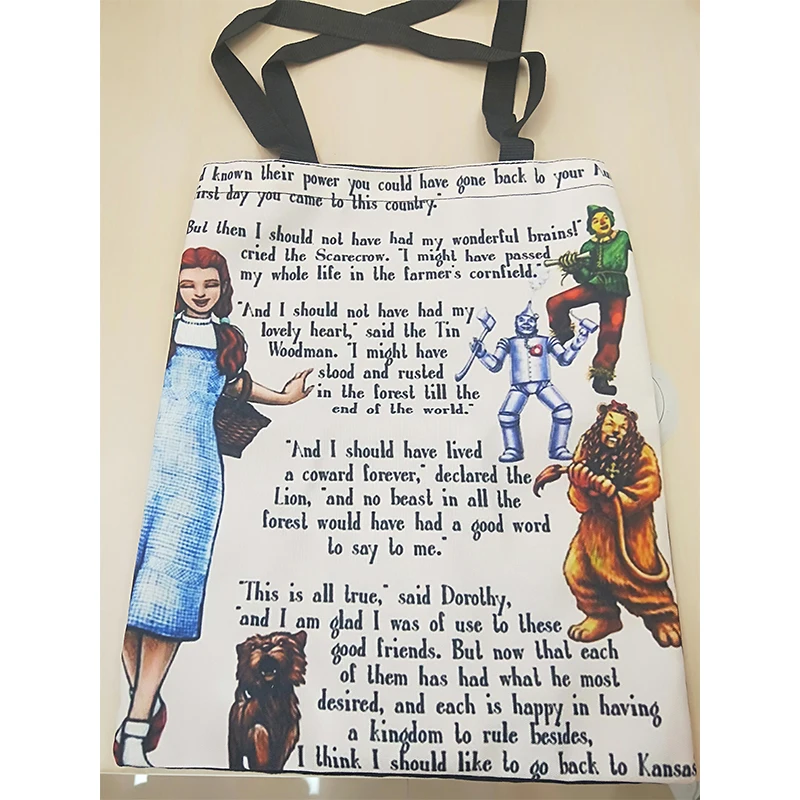 known their power you could have gone back to your
first day you came to this country."
But then I should not have had my wonderful brains!"
cried the Scarecrow. "I might have passed
my whole life in the farmer's cornfield."
"And I should not have had my
lovely heart," said the Tin
Woodman. "I might have
stood and rusted
in the forest till the
end of the world."
"And I should have lived
a coward forever," declared the
Lion, "and no beast in all the
forest would have had a good word
to say to me."
"This is all true," said Dorothy,
"and I am glad I was of use to these
good friends. But now that each
of them has had what he most
desired, and each is happy in having
a kingdom to rule besides,
I think I should like to go back to Kansas